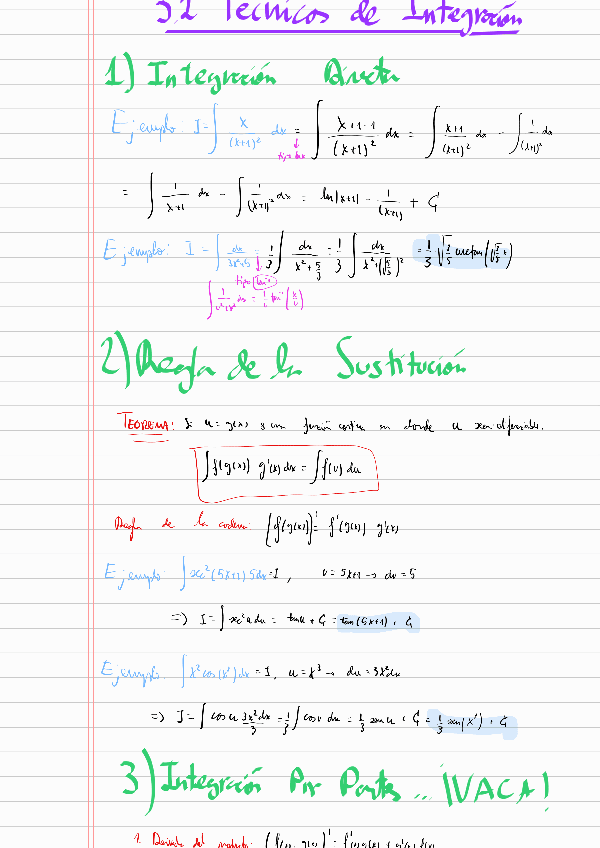 5.2 Técnicas de Integración
1) Integración Directa
Ejemplo: I = ∫ x/(x+1)² dx = ∫ (x+1-1)/(x+1)² dx = ∫ (x+1)/(x+1)² dx - ∫ 1/(x+1)² dx
tipo
= ∫ 1/(x+1) dx - ∫ 1/(x+1)² dx = ln|x+1| - 1/(x+1) + C
Ejemplo: I = ∫ dx/(3x²+5) = 1/3 ∫ dx/(x²+5/3) = 1/3 ∫ dx/(x²+(√(5/3))²) = 1/3 √(3/5) arctan(√(3/5) x)
tipo tan⁻¹
2) Regla de la Sustitución
TEOREMA: Si u = g(x) y una función continua en donde u sea diferenciable.
∫ f(g(x)) g'(x) dx = ∫ f(u) du
Regla de la cadena: [f(g(x))]' = f'(g(x)) g'(x)
Ejemplo: ∫ sec²(5x+1) 5dx = I, u = 5x+1 → du = 5
=> I = ∫ sec² u du = tan u + C = tan(5x+1) + C
Ejemplo: ∫ x² cos(x³) dx = I, u = x³ → du = 3x² dx
=> I = ∫ cos u 3x² dx/3 = 1/3 ∫ cos u du = 1/3 sen u + C = 1/3 sen(x³) + C
3) Integración Por Partes... ¡VACA!
1. Derivada del producto: